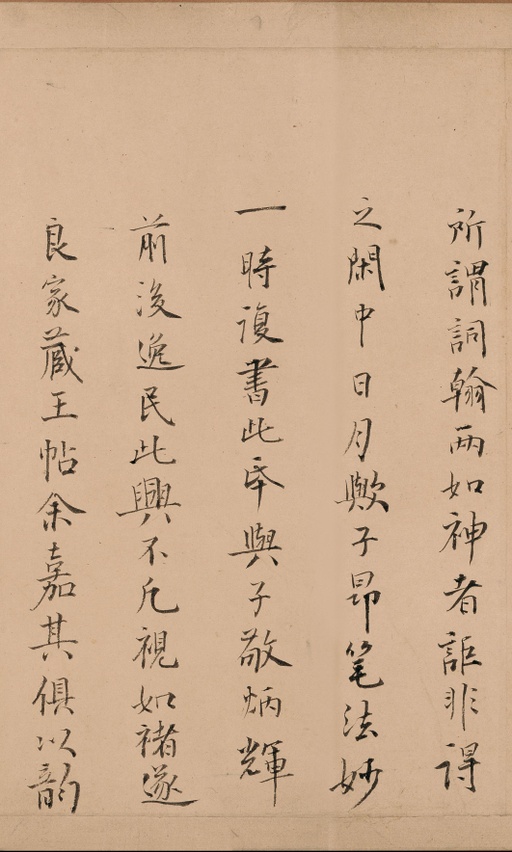 所謂詞翰兩如神者詎非得
之閑中日月歟子昂筆法妙
一時複書此卷與子敬炳輝
前後逸民此興不凡視如褚遂
良家藏王帖余嘉其俱以韵